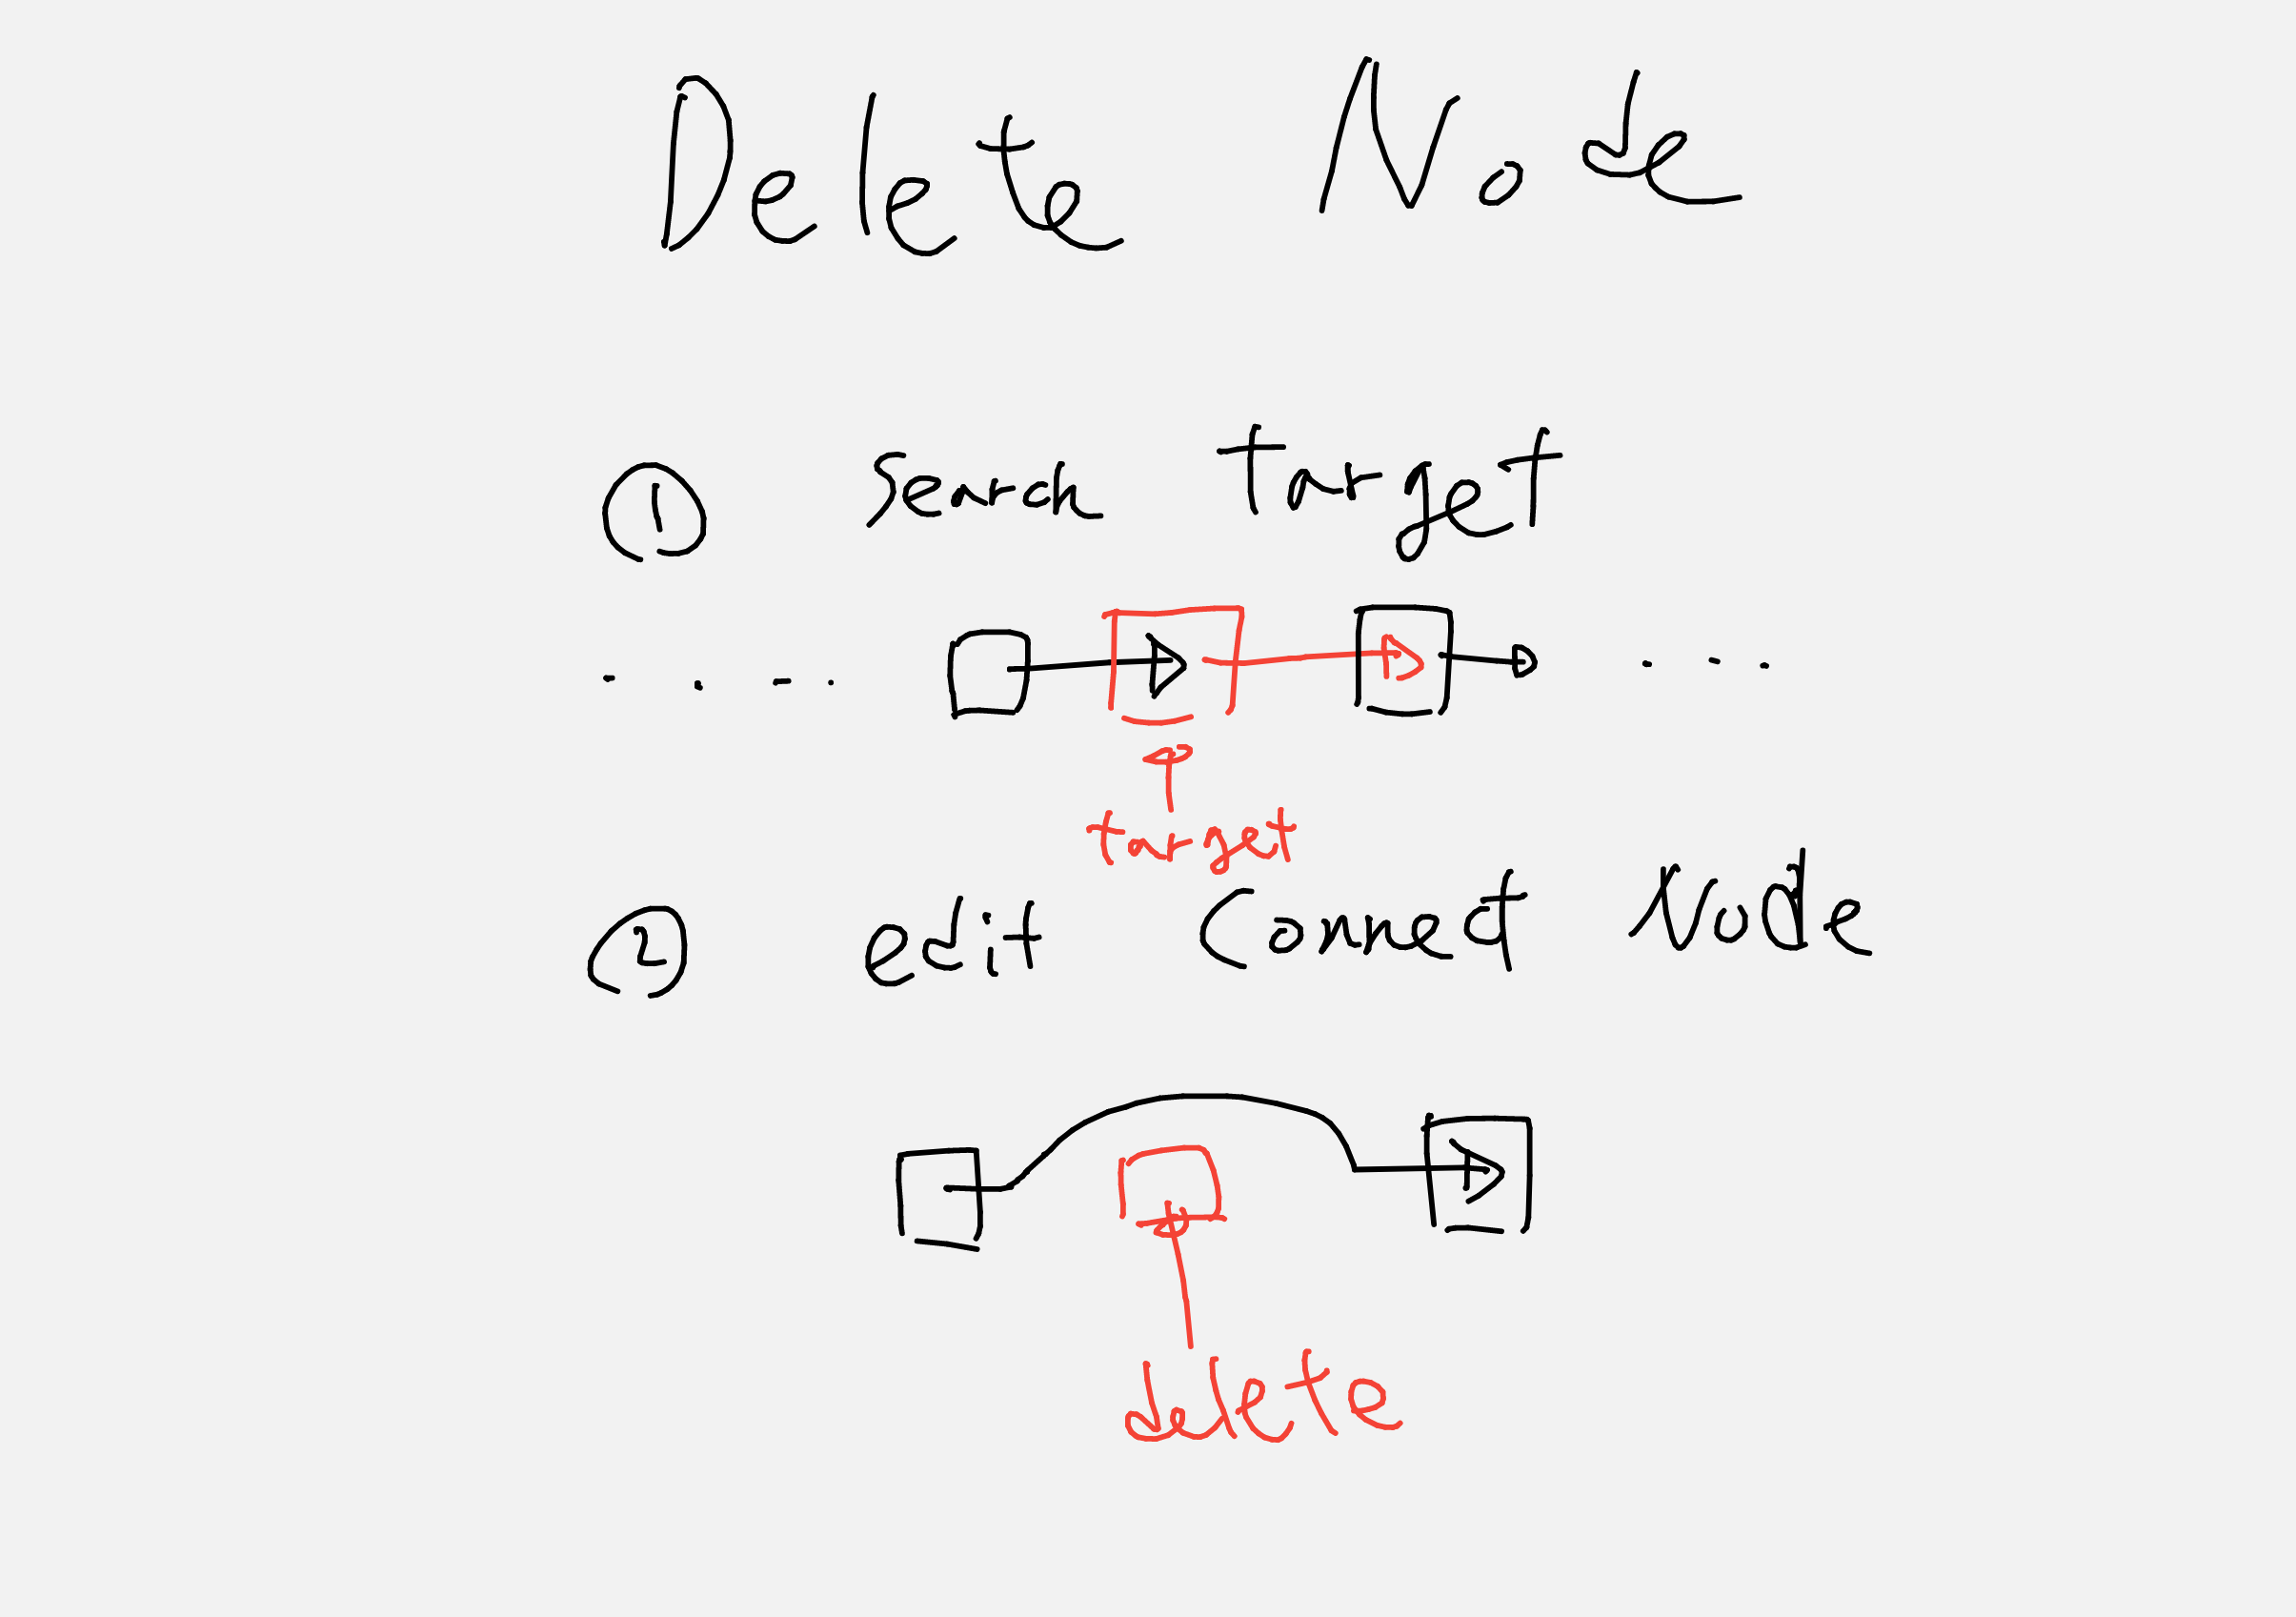 Delete Node
① Search Target
target
② edit Connect Node
delete